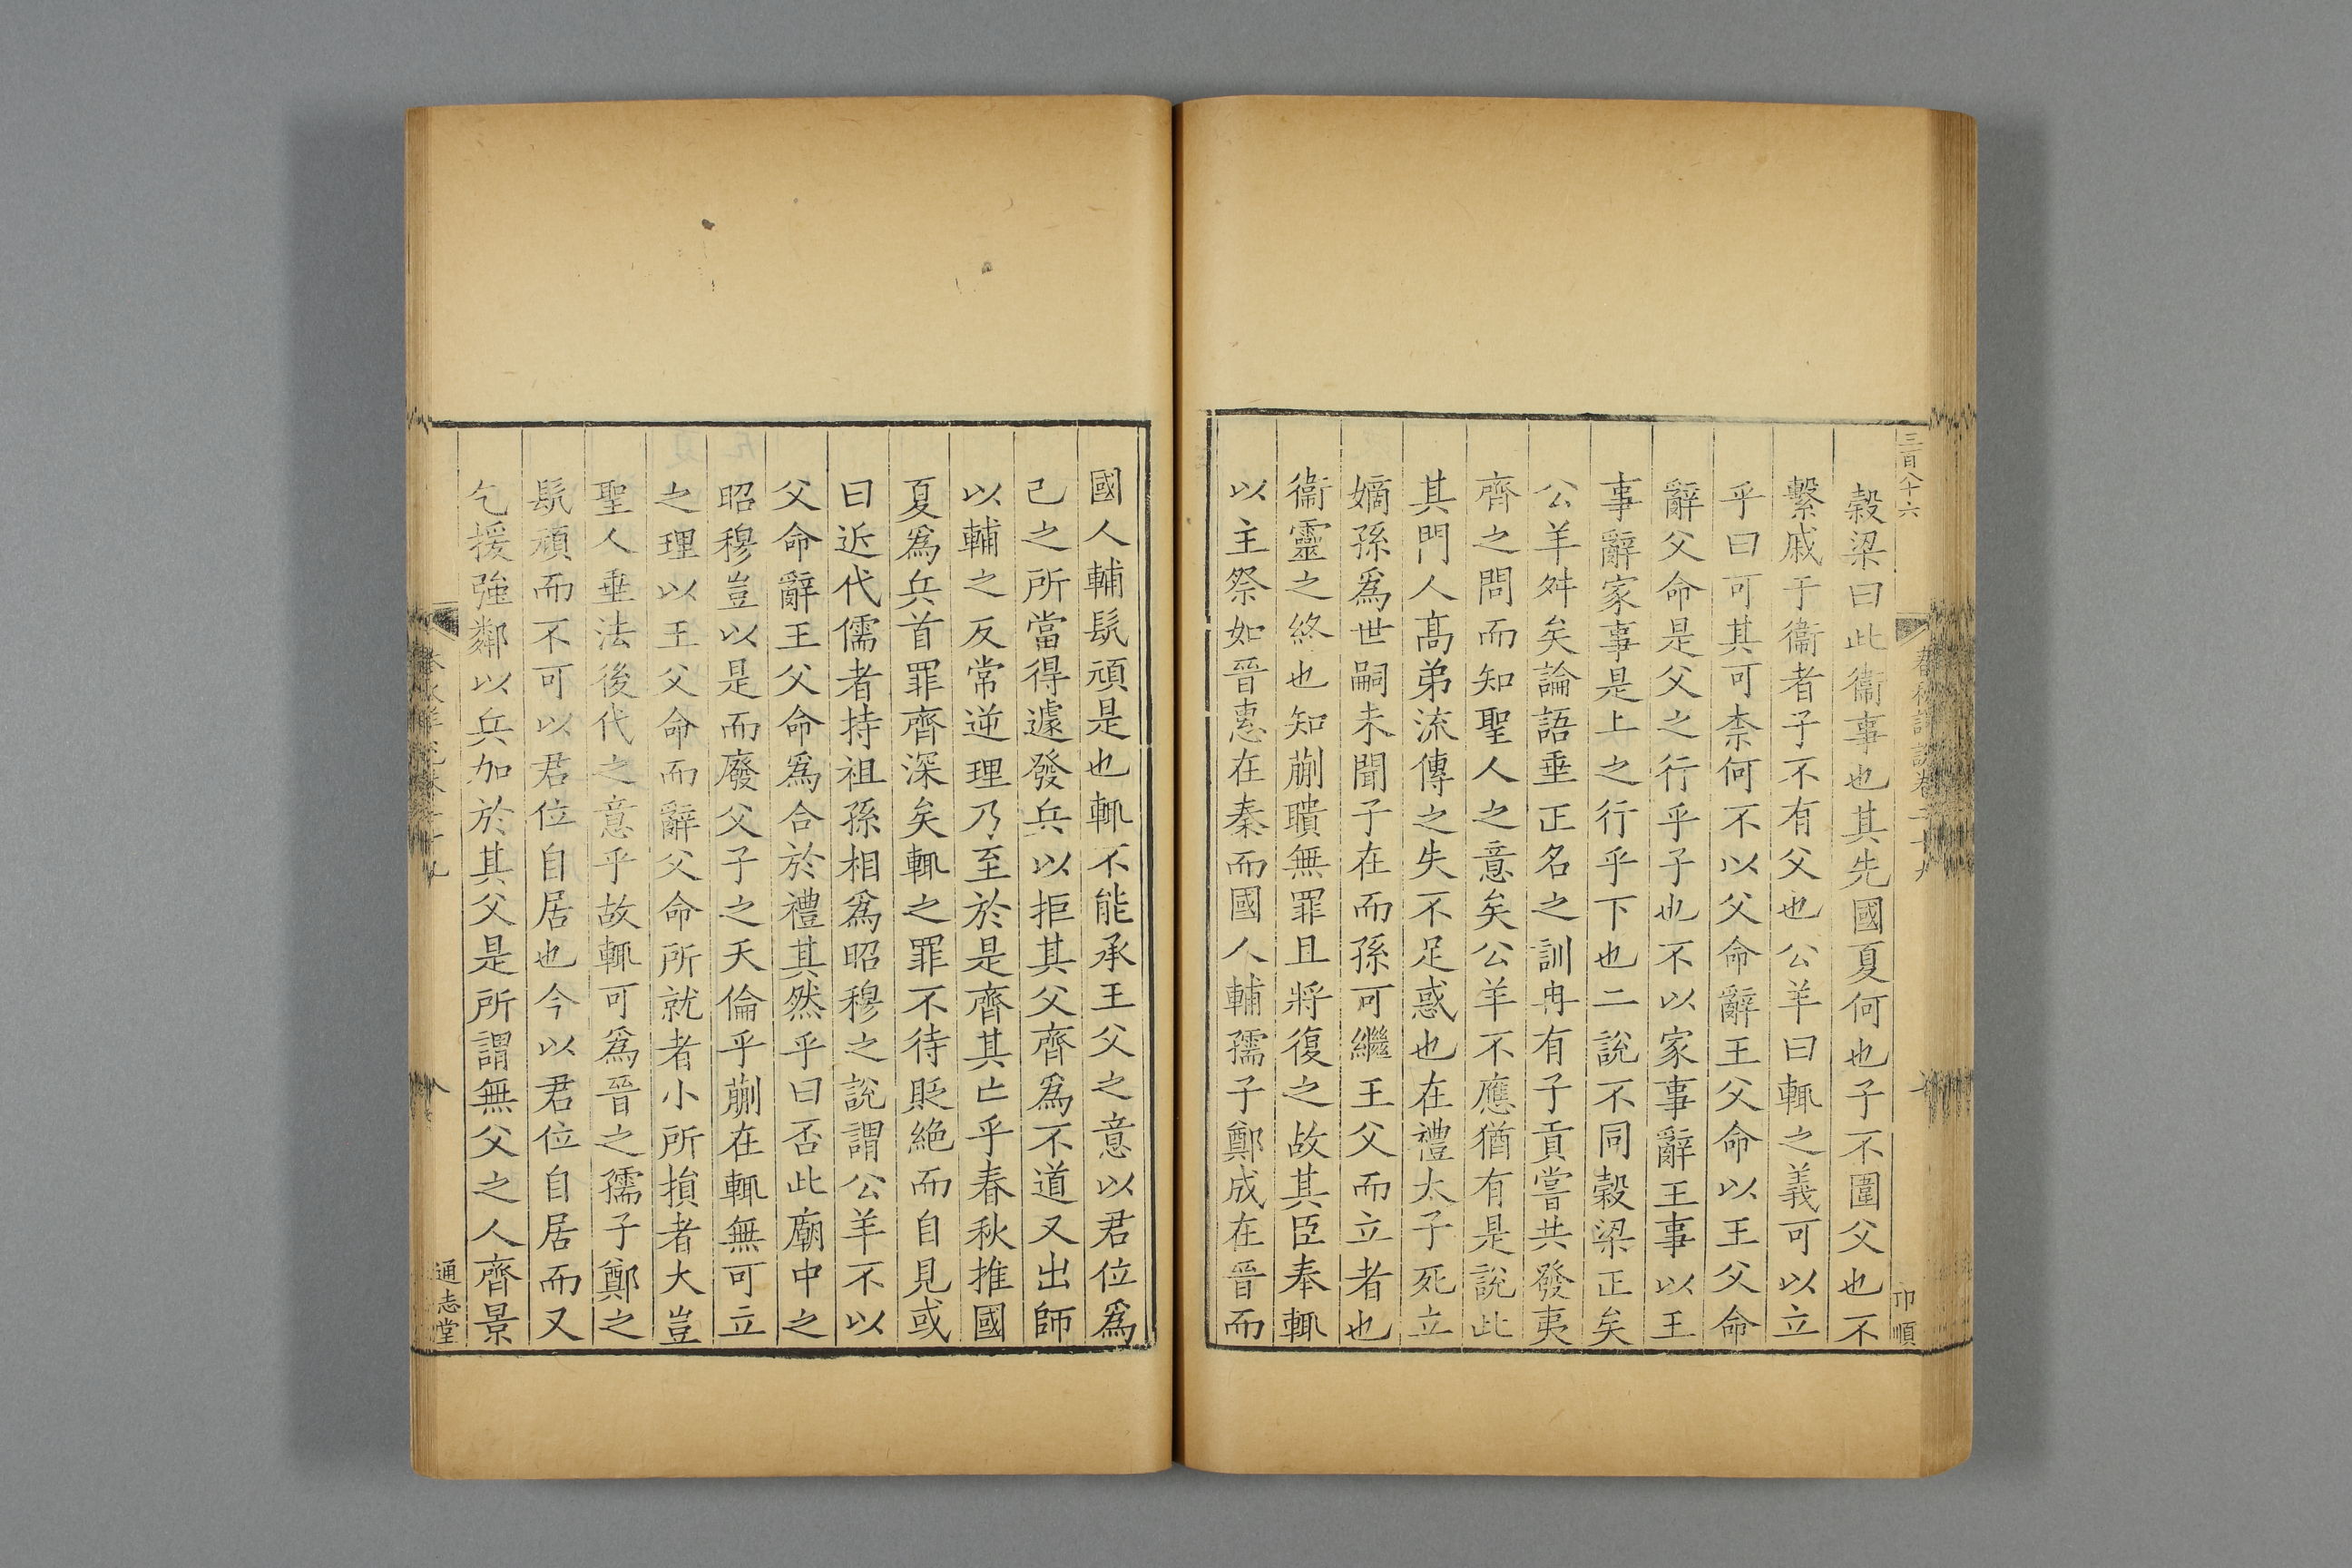 三百八十六
卬順
穀梁曰此衞事也其先國夏何也子不圍父也不
繫戚于衞者子不有父也公羊曰輒之義可以立
乎曰可其可柰何不以父命辭王父命以王父命
辭父命是父之行乎子也不以家事辭王事以王
事辭家事是上之行乎下也二說不同穀梁正矣
公羊舛矣論語垂正名之訓冉有子貢嘗共發夷
齊之問而知聖人之意矣公羊不應猶有是說此
其門人髙弟流傳之失不足惑也在禮太子死立
嫡孫爲世嗣未聞子在而孫可繼王父而立者也
衞靈之終也知蒯聵無罪且將復之故其臣奉輒
以主祭如晉惠在秦而國人輔孺子鄭成在晉而
國人輔髡頑是也輒不能承王父之意以君位爲
己之所當得遽發兵以拒其父齊爲不道又出師
以輔之反常逆理乃至於是齊其亡乎春秋推國
夏爲兵首罪齊深矣輒之罪不待貶絶而自見或
曰近代儒者持祖孫相爲昭穆之說謂公羊不以
父命辭王父命爲合於禮其然乎曰否此廟中之
昭穆豈以是而廢父子之天倫乎蒯在輒無可立
之理以王父命而辭父命所就者小所損者大豈
聖人垂法後代之意乎故輒可爲晉之孺子鄭之
髡頑而不可以君位自居也今以君位自居而又
乞援強鄰以兵加於其父是所謂無父之人齊景
八
通志堂